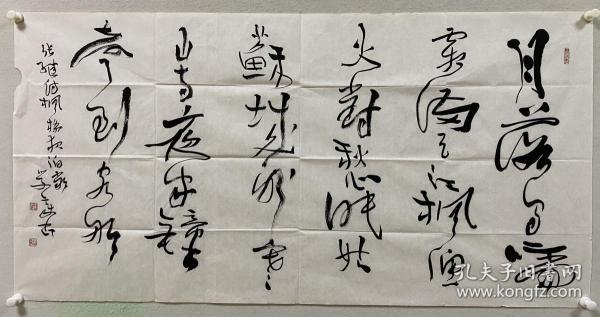 月落烏啼
霜滿天江枫渔
火對愁眠姑
蘇城外寒
山寺夜半鐘
聲到客船
张继诗枫橋夜泊
孔夫子旧书网
www.kongfz.com